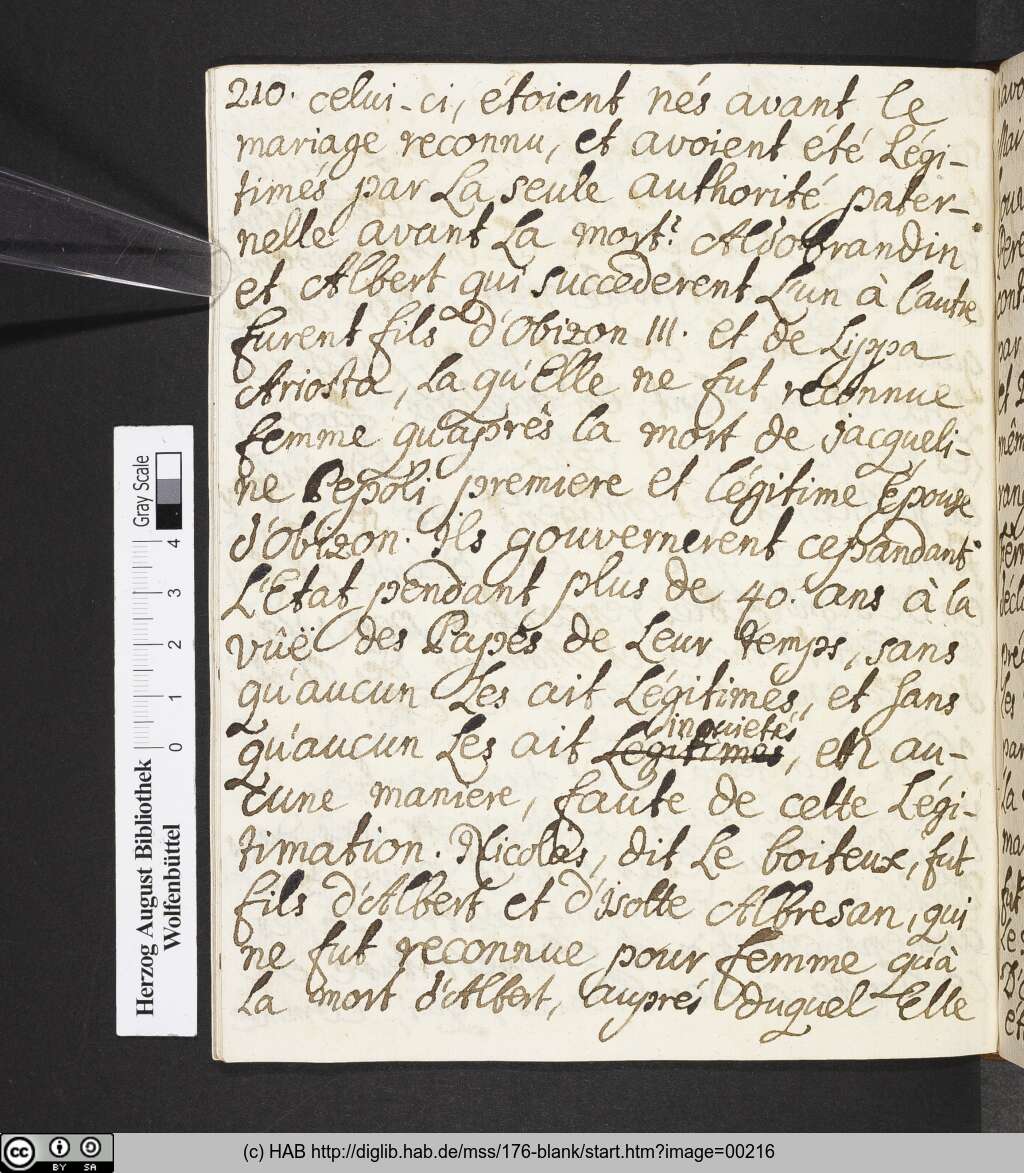 210. celui-ci, étoient nés avant le
mariage reconnu, et avoient été Légi-
timés par La seule authorité pater-
nelle avant La mort? Aldobrandin
et Albert qui succederent L'un à l'autre
furent fils d'Obizon III. et de Lippa
Ariosta, la qu'Elle ne fut reconnue
femme qu'aprés la mort de jacqueli-
ne Pepoli premiere et légitime Épouse
d'Obizon. Ils gouvernerent cepandant
L'Etat pendant plus de 40. ans à la
vûë des Papes de Leur temps, sans
qu'aucun Les ait Légitimés, et sans
inquietés
qu'aucun Les ait Légitimés, en au-
cune maniere, faute de cette Légi-
timation. Nicolas, dit Le boiteux, fut
fils d'Albert et d'Isotte Albresan, qui
ne fut reconnue pour femme qu'à
La mort d'Albert, auprés duquel Elle
Herzog August Bibliothek
Wolfenbüttel
Gray Scale
0 1 2 3 4
cc BY SA
(c) HAB http://diglib.hab.de/mss/176-blank/start.htm?image=00216